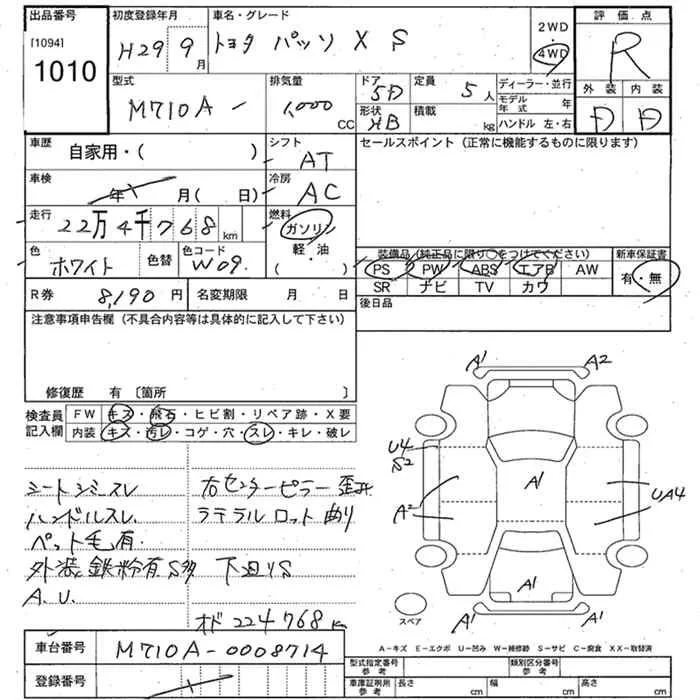 出品番号 初度登録年月 車名・グレード 2WD 評価点
[1094] H29 9月 トヨタ パッソ X S 4WD R
1010 型式 排気量 ドア 定員 ディーラー・並行 外装 内装
M710A - 1,000 CC 5D 5人 モデル年式 年 D D
形状 積載 HB kg ハンドル 左・右
車歴 自家用・( ) シフト AT セールスポイント (正常に機能するものに限ります)
車検 年 月( 日) 冷房 AC
走行 22万4千768km 燃料 ガソリン
色 ホワイト 色替 色コード W09 軽・油 ( )
装備品 (純正品に限り○をつけてください) 新車保証書
PS PW ABS エアB AW 有・無
SR ナビ TV カワ
R券 8,190円 名変期限 月 日 後日品
注意事項申告欄 (不具合内容等は具体的に記入して下さい)
修復歴 有 〔箇所 〕
検査員 FW キズ・飛石・ヒビ割・リペア跡・X要
記入欄 内装 キズ・汚レ・コゲ・穴・スレ・キレ・破レ
A1 A2
U4
S2
A1
A2 UA4
A1
A1 A1
スペア
シートシミスレ 右センターピラー歪
ハンドルスレ ラテラルロット曲り
ペット毛有
外装鉄粉有S多 下廻りS
A.U.
オド 224768K
A−キズ E−エクボ U−凹み W−補修跡 S−サビ C−腐食 XX−取替済
車台番号 M710A-0008714
登録番号
型式指定番号 参考 類別区分番号 参考
車庫証明用 参考 長さ cm 幅 cm 高さ cm